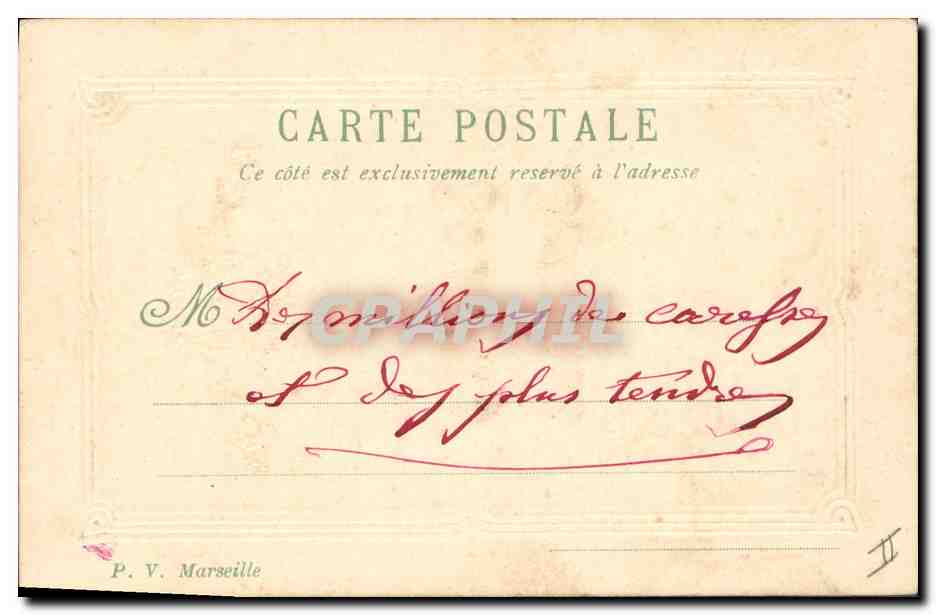 CARTE POSTALE
Ce côté est exclusivement reservé à l'adresse
M Des millions de caresses
et des plus tendres
P. V. Marseille
II
CPAPHIL